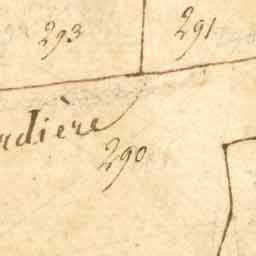 293
291
rdière
290